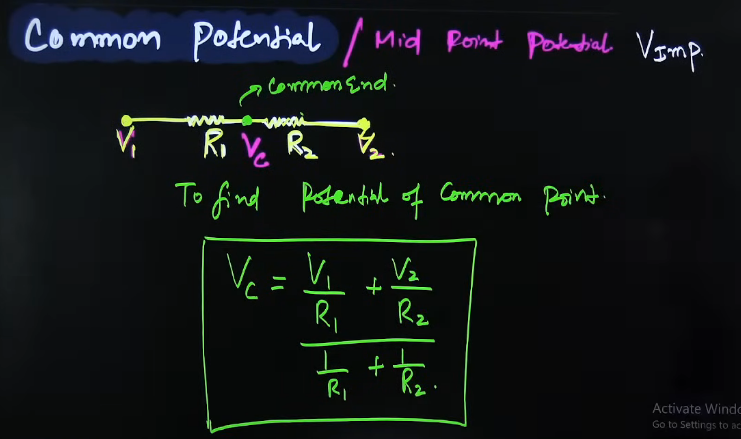 Common Potential / Mid Point Potential V Imp.
Common End.
V₁ R₁ V_C R₂ V₂.
To find Potential of Common Point.
V_C = V₁/R₁ + V₂/R₂
1/R₁ + 1/R₂.
Activate Windo
Go to Settings to ac